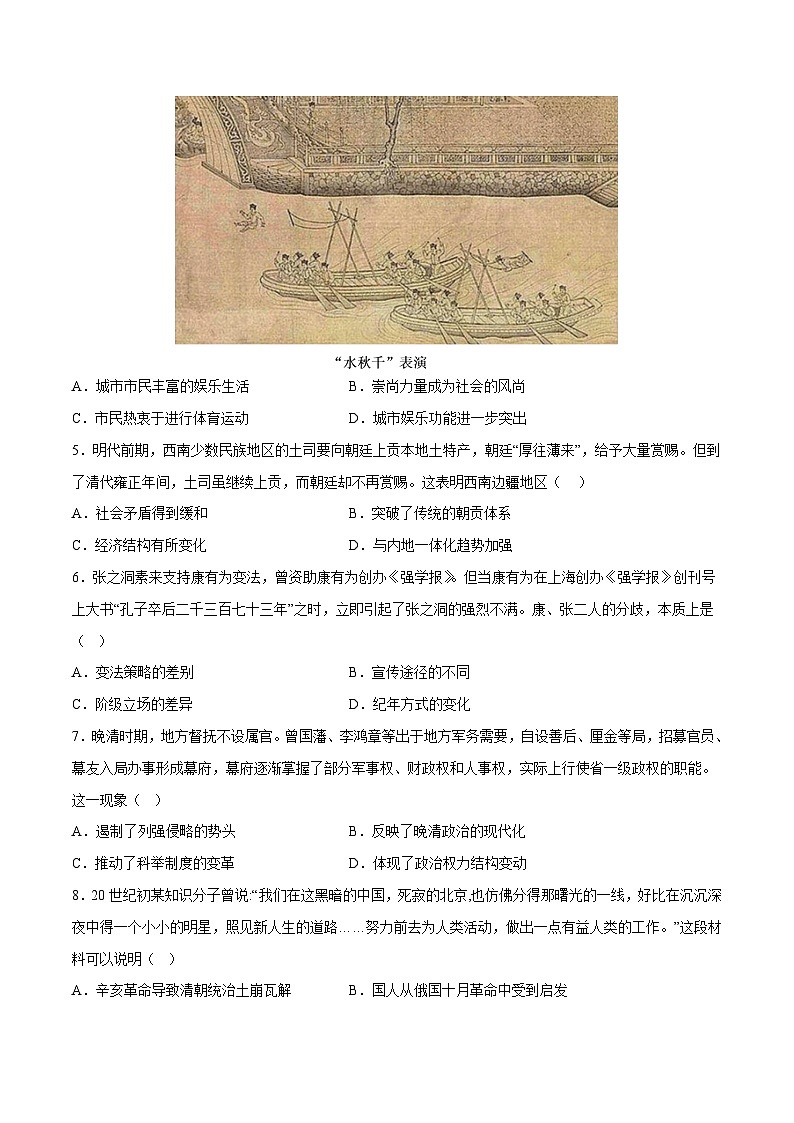 “水秋千”表演
A．城市市民丰富的娱乐生活 B．崇尚力量成为社会的风尚
C．市民热衷于进行体育运动 D．城市娱乐功能进一步突出
5．明代前期，西南少数民族地区的土司要向朝廷上贡本地土特产，朝廷“厚往薄来”，给予大量赏赐。但到
了清代雍正年间，土司虽继续上贡，而朝廷却不再赏赐。这表明西南边疆地区（ ）
A．社会矛盾得到缓和 B．突破了传统的朝贡体系
C．经济结构有所变化 D．与内地一体化趋势加强
6．张之洞素来支持康有为变法，曾资助康有为创办《强学报》。但当康有为在上海创办《强学报》创刊号
上大书“孔子卒后二千三百七十三年”之时，立即引起了张之洞的强烈不满。康、张二人的分歧，本质上是
（ ）
A．变法策略的差别 B．宣传途径的不同
C．阶级立场的差异 D．纪年方式的变化
7．晚清时期，地方督抚不设属官。曾国藩、李鸿章等出于地方军务需要，自设善后、厘金等局，招募官员、
幕友入局办事形成幕府，幕府逐渐掌握了部分军事权、财政权和人事权，实际上行使省一级政权的职能。
这一现象（ ）
A．遏制了列强侵略的势头 B．反映了晚清政治的现代化
C．推动了科举制度的变革 D．体现了政治权力结构变动
8．20世纪初某知识分子曾说:“我们在这黑暗的中国，死寂的北京,也仿佛分得那曙光的一线，好比在沉沉深
夜中得一个小小的明星，照见新人生的道路……努力前去为人类活动，做出一点有益人类的工作。”这段材
料可以说明（ ）
A．辛亥革命导致清朝统治土崩瓦解 B．国人从俄国十月革命中受到启发